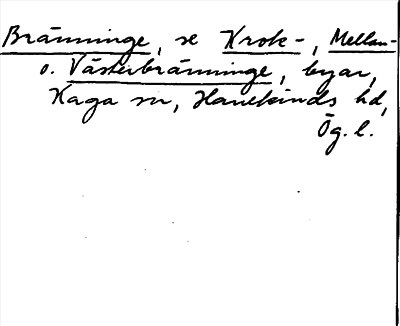 Bränninge, se Krok-, Mellan-
o. Västerbränninge, byar,
Kaga sn, Hanekinds hd,
Ög. l.